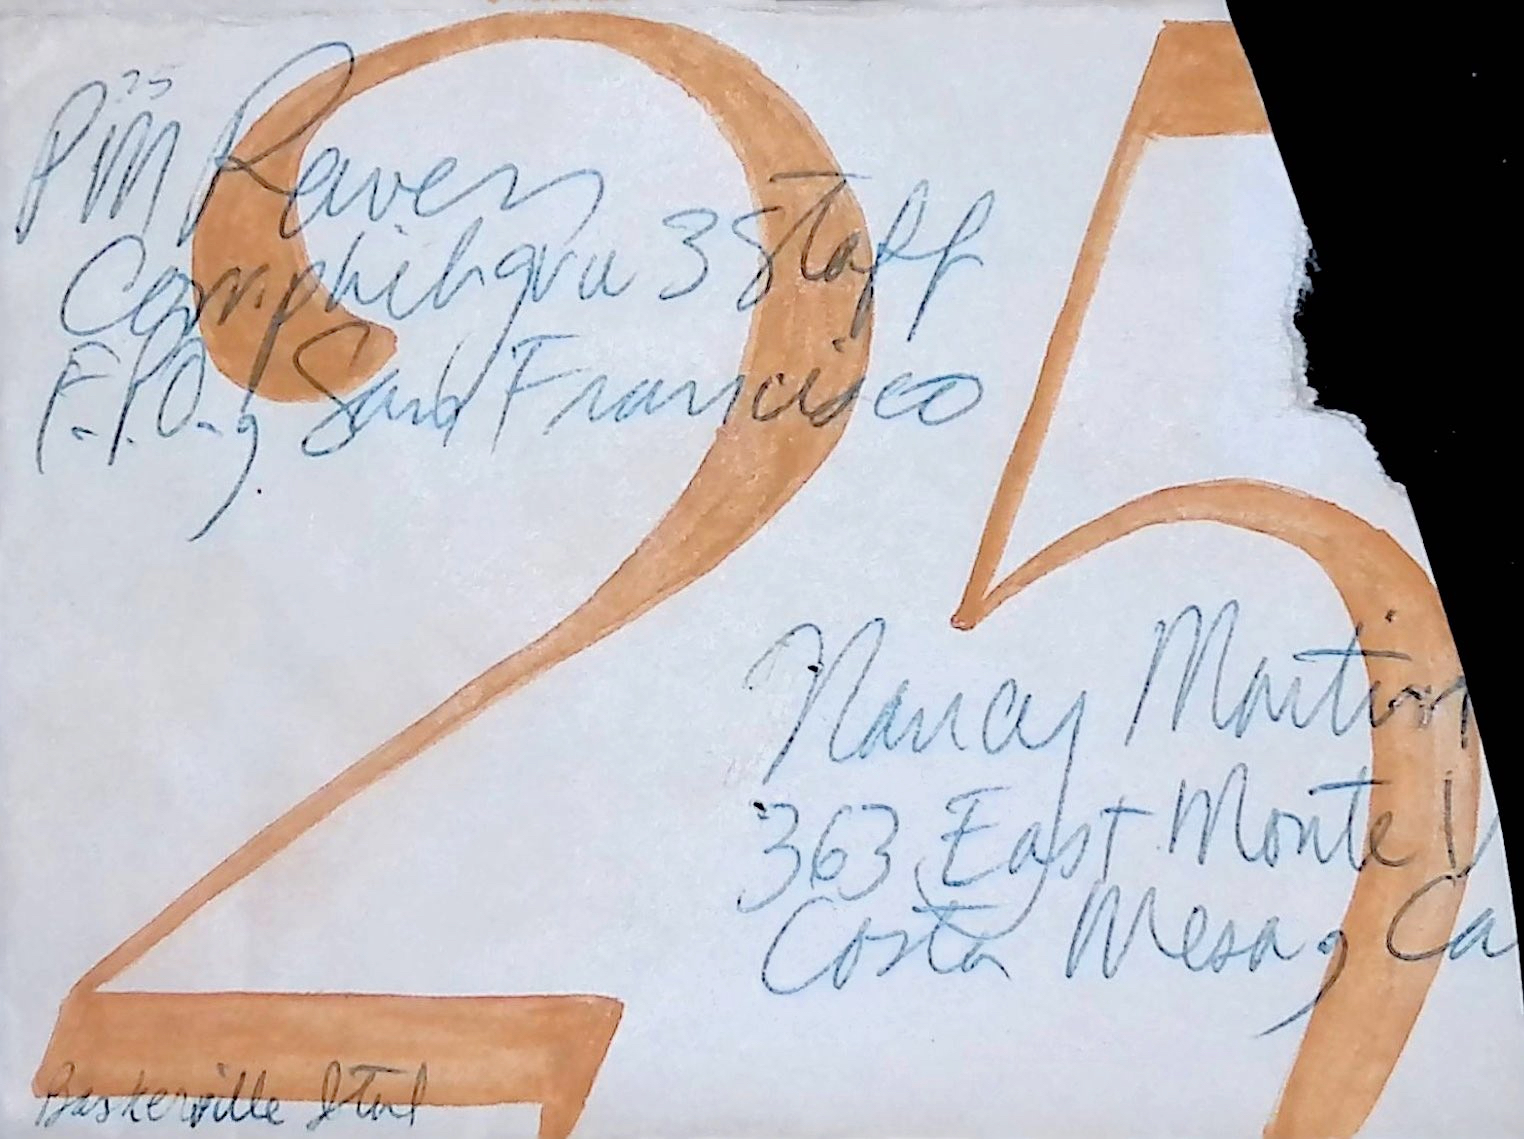 25
PM Raven
Comphibgru 3 Staff
F.P.O., San Francisco
Nancy Martin
363 East Monte V
Costa Mesa, Ca
Baskerville Ital